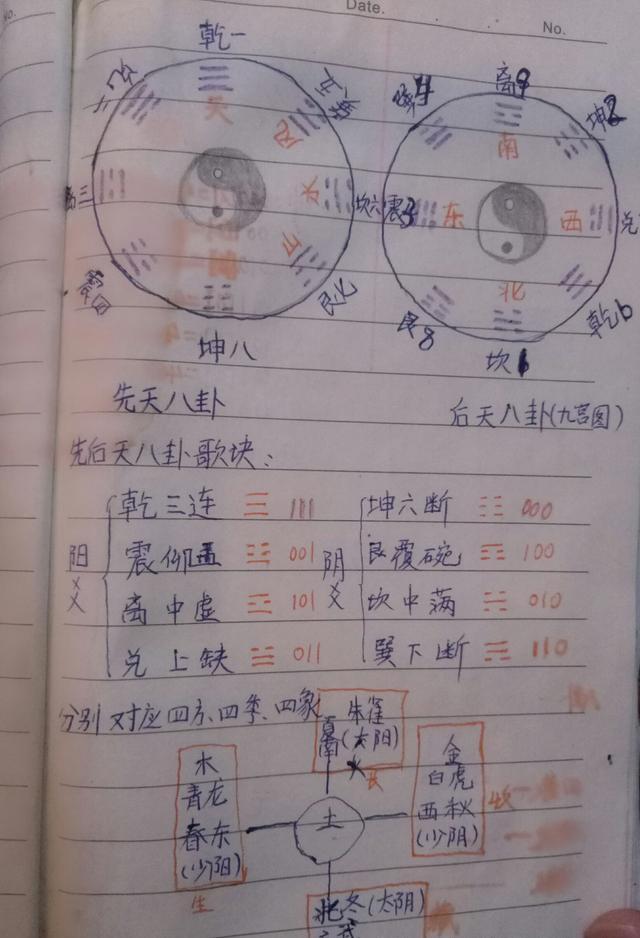 No.
Date.
No.
乾一
天
水
坎六
山
艮七
坤八
震四
先天八卦
离9
坤2
兑
乾6
坎1
艮8
震3
南
东
西
北
后天八卦(九宫图)
先后天八卦歌块:
阳爻
乾三连 ☰ 111
震仰盂 ☳ 001
离中虚 ☲ 101
兑上缺 ☱ 011
阴爻
坤六断 ☷ 000
艮覆碗 ☶ 100
坎中满 ☵ 010
巽下断 ☴ 110
分别对应四方、四季、四象
朱雀
夏南(太阳)
火
长
木
青龙
春东
(少阳)
生
土
金
白虎
西秋
(少阴)
收
北冬(太阴)